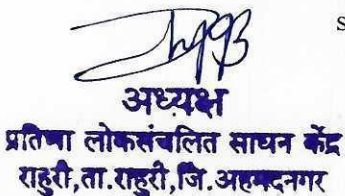 S
अध्यक्ष
प्रतिभा लोकसंचलित साधन केंद्र
राहुरी,ता.राहुरी,जि.अहमदनगर